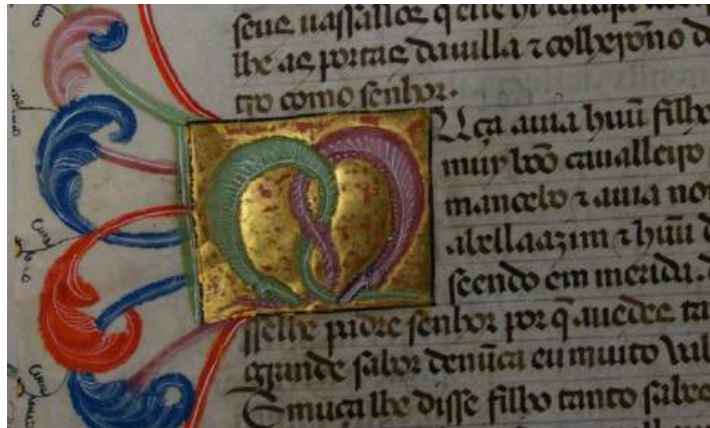 seus uassallos q̃ elle hi
lhe as portas da uilla ⁊ colherõno d
tro como senhor.
Muça auia huũ filho
muy bõo caualleiro
mancebo ⁊ auia no
abellaazim ⁊ huũ d
seendo em merida. d
sselhe padre senhor por q̃ auedes ta
grande sabor de nũca eu muito ual
E muça lhe disse filho tanto sabe